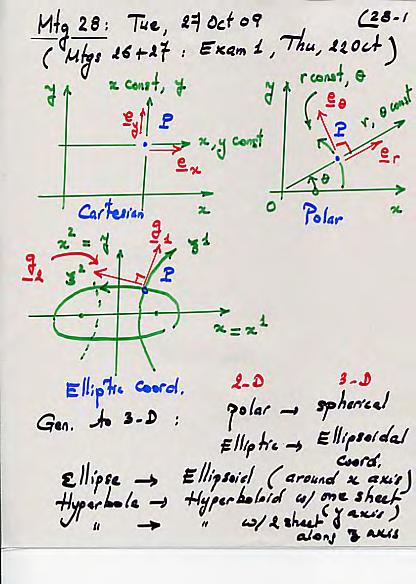 Mtg 28: Tue, 27 Oct 09 (28-1
(Mtgs 26+27: Exam 1, Thu, 22Oct)
y x const, y
e_y P
x, y const
e_x
Cartesian x
y r const, θ
e_θ
P r, θ const
e_r
θ
O Polar x
x² = y g_1
g_2 z² P z¹
x = x¹
Elliptic Coord.
2-D 3-D
Gen. to 3-D : polar → spherical
Elliptic → Ellipsoidal
coord.
Ellipse → Ellipsoid (around x axis)
Hyperbole → Hyperboloid w/ one sheet
(y axis)
" → " w/ 2 sheet
along z axis